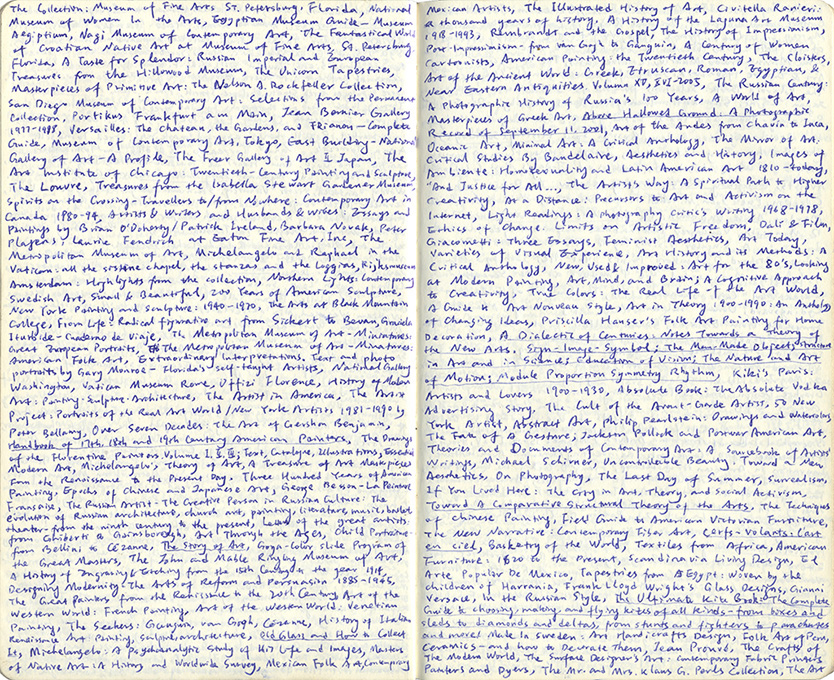 The Collection: Museum of Fine Arts St. Petersburg, Florida, National
Museum of Women in the Arts, Egyptian Museum Guide - Museum
Aegiptium, Nagi Museum of Contemporary Art, The Fantastical World
of Croatian Naive Art at Museum of Fine Arts, St. Petersburg
Florida, A Taste for Splendor: Russian Imperial and European
Treasures from the Hillwood Museum, The Unicorn Tapestries,
Masterpieces of Primitive Art: The Nelson A. Rockefeller Collection,
San Diego Museum of Contemporary Art: Selections from the Permanent
Collection, Portikus Frankfurt am Main, Jean Bernier Gallery
1977-1988, Versailles: The chateau, the Gardens, and Trianon - Complete
Guide, Museum of Contemporary Art, Tokyo, East Building - National
Gallery of Art - A Profile, The Freer Gallery of Art II Japan, The
Art Institute of Chicago: Twentieth-Century Painting and Sculpture,
The Louvre, Treasures from the Isabella Stewart Gardener Museum,
Spirits on the Crossing - Travellers to/from Nowhere: Contemporary Art in
Canada 1980-94, Artists & Writers and Husbands & Wives: Essays and
Paintings by Brian O'Doherty/Patrick Ireland, Barbara Novak, Peter
Plagens, Laurie Fendrich at Eaton Fine Art, Inc, The
Metropolitan Museum of Art, Michelangelo and Raphael in the
Vatican: all the sistine chapel, the stanzas and the loggias, Rijksmuseum
Amsterdam: Highlights from the collection, Northern Lights: Contemporary
Swedish Art, Small & Beautiful, 200 Years of American Sculpture,
New York Painting and Sculpture: 1940-1970, The Arts at Black Mountain
College, From Life: Radical figurative art from Sickert to Bevan, Graciela
Iturbide - Cuaderno de Viaje, The Metropolitan Museum of Art - Miniatures:
Great European Portraits, The Metropolitan Museum of Art - Miniatures:
American Folk Art, Extraordinary Interpretations. Text and photo
portraits by Gary Monroe - Florida's self-taught Artists, National Gallery
Washington, Vatican Museum Rome, Uffizi Florence, History of Modern
Art: Painting-Sculpture-Architecture, The Artist in America, The Artist
Project: Portraits of the Real Art World/New York Artists 1981-1990 by
Peter Bellamy, Over Seven Decades: The Art of Gershon Benjamin,
Handbook of 17th, 18th and 19th Century American Painters, The Drawings
of the Florentine Painters. Volume I, II, III; Text, Catalogue, Illustrations, Essential
Modern Art, Michelangelo's Theory of Art, A Treasure of Art Masterpieces
from the Renaissance to the Present Day. Three Hundred Years of American
Painting, Epochs of Chinese and Japanese Art, Georg Besson La Peinture
Française, The Russian Artist: The Creative Person in Russian Culture: The
evolution of Russian architecture, church art, painting, literature, music, ballet,
theater from the ninth century to the present, Letters of the great artists:
from Ghiberti to Gainsborough, Art Through the Ages, Child Portraiture:
from Bellini to Cézanne, The Story of Art, Color Slide Program of
the Great Masters, The John and Mable Ringling Museum of Art,
A History of Engraving & Etching from the 15th Century to the year 1914,
Designing Modernity: The Arts of Reform and Persuasion 1885-1945,
The Great Painters from the Renaissance to the 20th Century Art of the
Western World: French Painting, Art of the Western World: Venetian
Painting, The Seekers: Gauguin, van Gogh, Cézanne, History of Italian
Renaissance Art Painting, Sculpture, Architecture, Old Glass and How to Collect
It, Michelangelo: A Psychoanalytic Study of His Life and Images, Masters
of Native Art: A History and Worldwide Survey, Mexican Folk Art, Contemporary
Mexican Artists, The Illustrated History of Art, Civitella Ranieri:
a thousand years of history, A History of the Laguna Art Museum
1918-1993, Rembrandt and the Gospel, The History of Impressionism,
Post-Impressionism - from van Gogh to Gauguin, A Century of Women
Cartoonists, American Painting: the Twentieth Century, The Cloisters,
Art of the Ancient World: Greek, Etruscan, Roman, Egyptian, &
Near Eastern Antiquities. Volume XVI-2005, The Russian Century:
A Photographic History of Russia's 100 Years, A World of Art,
Masterpieces of Greek Art, Above Hallowed Ground: A Photographic
Record of September 11, 2001, Art of the Andes from Chavin to Inca,
Oceanic Art, Minimal Art: A Critical Anthology, The Mirror of Art:
Critical Studies By Baudelaire, Aesthetics and History, Images of
Ambiente: Homosexuality and Latin American Art 1810-today,
"And Justice for All...", The Artist's Way: A Spiritual Path to Higher
Creativity, At a Distance: Precursors to Art and Activism on the
Internet, Light Readings: A photography Critic's Writing 1968-1978,
Ethics of Change. Limits on Artistic Freedom, Dali & Film,
Giacometti: Three Essays, Feminist Aesthetics, Art Today,
Varieties of Visual Experience, Art History and its Methods: A
Critical Anthology, New, Used & Improved: Art for the 80s, Looking
at Modern Painting, Art, Mind, and Brain; A Cognitive Approach
to Creativity, True Colors: The Real Life of the Art World,
A Guide to Art Nouveau Style, Art in Theory: 1900-1990: An Anthology
of Changing Ideas, Priscilla Hauser's Folk Art Painting for Home
Decoration, A Dialectic of Centuries: Notes Towards a Theory of
the New Arts. Sign-Image-Symbol; The Man-Made Object; Structure
in Art and in Science; Education of Vision; The Nature and Art
of Motion; Module Proportion Symmetry Rhythm, Kiki's Paris:
Artists and Lovers 1900-1930, Absolute Book: The Absolute Vodka
Advertising Story, The Cult of the Avant-Garde Artist, 50 New
York Artist, Abstract Art, Philip Pearlstein: Drawings and Watercolors,
The Fate of A Gesture; Jackson Pollock and Postwar American Art,
Theories and Documents of Contemporary Art: A Sourcebook of Artists'
Writings, Michael Schirner, Uncontrollable Beauty Toward a New
Aesthetics, On Photography, The Last Day of Summer, Surrealism,
If You Lived Here: The City in Art, Theory, and Social Activism,
Toward A Comparative Structural Theory of the Arts, The Techniques
of Chinese Painting, Field Guide to American Victorian Furniture,
The New Narrative: Contemporary Fiber Art, Cerfs-volants: L'art
en ciel, Basketry of the World, Textiles from Africa, American
Furniture: 1620 to the Present, Scandinavia Living Design, El
Arte Popular De Mexico, Tapestries from Egypt: Woven by the
children of Harrania, Frank Lloyd Wright's Glass Designs, Gianni
Versace, In the Russian Style, The Ultimate Kite Book: The Complete
Guide to choosing, making, and flying kites of all kinds - from boxes and
sleds to diamonds and deltas, from stunts and fighters to parachutes
and more! Made in Sweden: Art Handicrafts Design, Folk Art of Peru,
Ceramics - and how to Decorate Them, Jean Prouvé, The Crafts of
The Modern World, The Surface Designer's Art: Contemporary Fabric Printers
Painters and Dyers, The Mr. and Mrs. Klaus G. Perls Collection, The Art